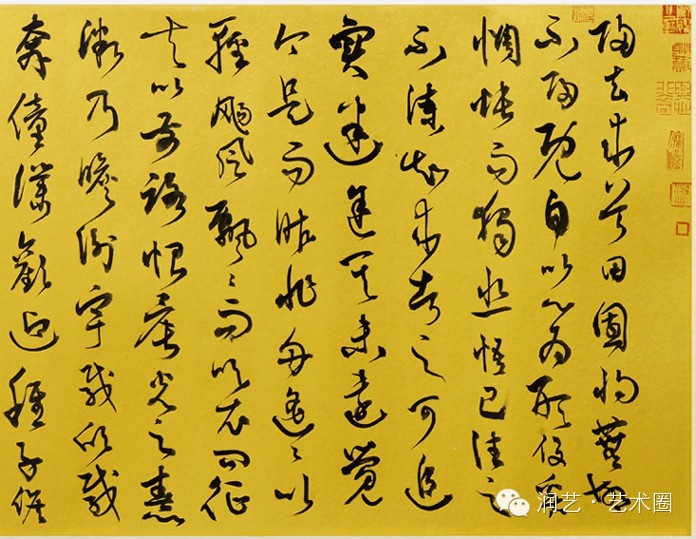 歸去来兮田園将蕪胡
不歸既自以心为形役奚
惆悵而獨悲悟已往之
不諫知来者之可追
實迷途其未遠覺
今是而昨非舟遥〻以
輕颺風飄〻而吹衣問征
夫以前路恨晨光之熹
微乃瞻衡宇載欣載
奔僮僕歡迎稚子候
润艺·艺术圈